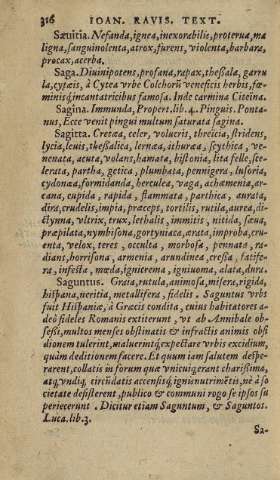 316 IOAN. RAVIS. TEXT.
Sæuitia. Nefanda, ignea, inexorabilis, proterua, ma
ligna, sanguinolenta, atrox, furens, violenta, barbara,
procax, acerba.
Saga. Diuinipotens, profana, rapax, thessala, garru
la, cytæis, à Cytea vrbe Colchorũ veneficis herbis, fœ-
minisq́; incantatricibus famosa. Inde carmina Citeina.
Sagina. Immunda, Propert. lib. 4. Pinguis. Ponta-
nus, Ecce venit pingui multum saturata sagina.
Sagitta. Cretæa, celer, volucris, threicia, stridens,
lycia, leuis, thessalica, lernæa, ithuræa, scythica, ve-
nenata, acuta, volans, hamata, bistonia, lita felle, sce-
lerata, partha, getica, plumbata, pennigera, lusoria,
cydonæa, formidanda, herculea, vaga, achæmenia, ar-
cana, cupida, rapida, flammata, parthica, aurata,
dira, crudelis, impia, præceps, tortilis, rutila, aurea, di-
ctynna, vltrix, trux, lethalis, immitis, nitida, sæua,
præpilata, nymbisona, gortyniaca, ærata, improba, cru-
enta, velox, teres, occulta, morbosa, pennata, ra-
dians, horrisona, armenia, arundinea, cressa, fatife-
ra, infesta, mœda, ignitrema, igniuoma, alata, dura.
Saguntus. Graia, rutula, animosa, misera, rigida,
hispana, neritia, metallifera, fidelis. Saguntus vrbs
fuit Hispaniæ, à Græcis condita, cuius habitatores a-
deò fideles Romanis extiterunt, vt ab Annibale ob-
sessi, multos menses obstinatis & infractis animis obsi
dionem tulerint, malueríntq́; expectare vrbis excidium,
quàm deditionem facere. Et quum iam salutem despe-
rarent, collatis in forum quæ vnicuiq; erant charissima,
atq; vndiq; circũdatis accensisq́; ignì nutrimētis, ne à so
cietate desisterent, publico & communi rogo se ipsos su
periecerunt. Dicitur etiam Saguntum, & Saguntos.
Luca. lib. 3.
Sa-